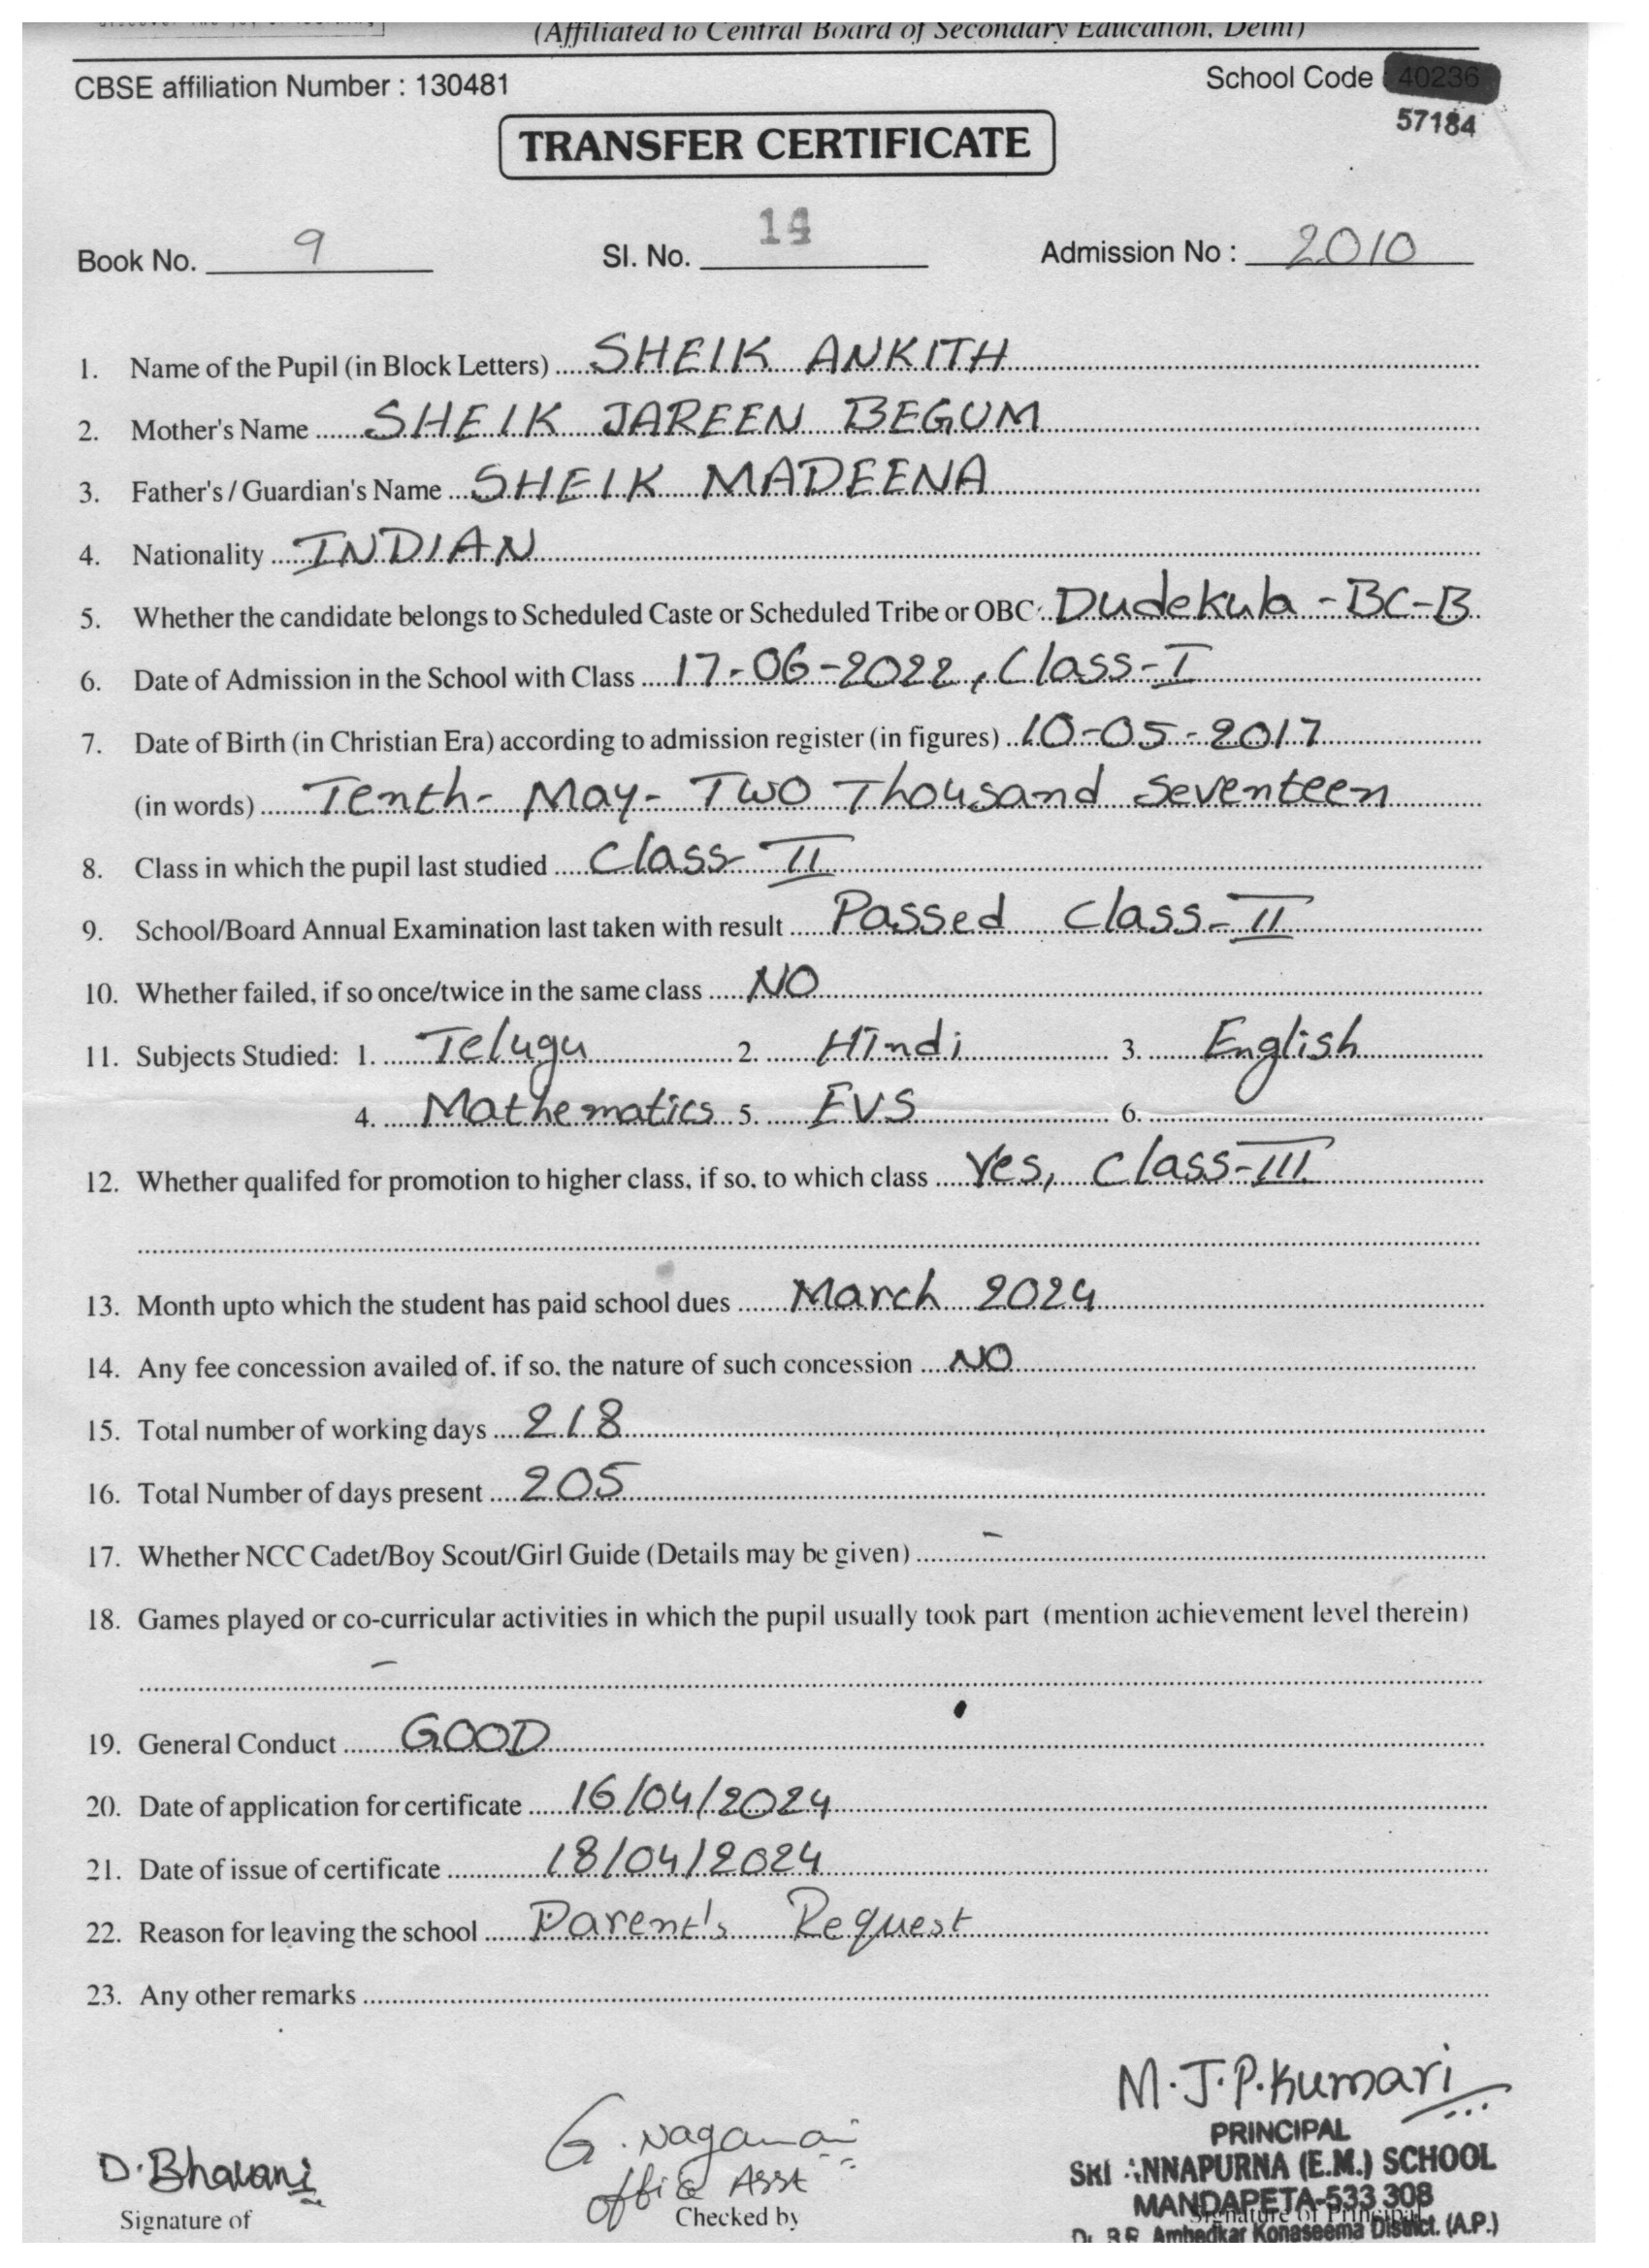 (Affiliated to Central Board of Secondary Education, Delhi)
CBSE affiliation Number : 130481 School Code : 40236
57184
TRANSFER CERTIFICATE
Book No. 9 Sl. No. Admission No : 2010
1. Name of the Pupil (in Block Letters) SHEIK ANKITH
2. Mother's Name SHEIK JAREEN BEGUM
3. Father's / Guardian's Name SHEIK MADEENA
4. Nationality INDIAN
5. Whether the candidate belongs to Scheduled Caste or Scheduled Tribe or OBC Dudekula - BC-B
6. Date of Admission in the School with Class 17-06-2022, Class-I
7. Date of Birth (in Christian Era) according to admission register (in figures) 10-05-2017
(in words) Tenth- May- Two Thousand Seventeen
8. Class in which the pupil last studied Class- II
9. School/Board Annual Examination last taken with result Passed Class-II
10. Whether failed, if so once/twice in the same class NO
11. Subjects Studied: 1. Telugu 2. Hindi 3. English
4. Mathematics 5. EVS 6.
12. Whether qualifed for promotion to higher class, if so, to which class Yes, Class-III
13. Month upto which the student has paid school dues March 2024
14. Any fee concession availed of, if so, the nature of such concession NO
15. Total number of working days 218
16. Total Number of days present 205
17. Whether NCC Cadet/Boy Scout/Girl Guide (Details may be given) -
18. Games played or co-curricular activities in which the pupil usually took part (mention achievement level therein)
-
19. General Conduct GOOD
20. Date of application for certificate 16/04/2024
21. Date of issue of certificate 18/04/2024
22. Reason for leaving the school Parent's Request
23. Any other remarks
M.J.P.Kumari
PRINCIPAL
SRI ANNAPURNA (E.M.) SCHOOL
MANDAPETA-533 308
Dr. B.R. Ambedkar Konaseema District. (A.P.)
Signature of Principal
D.Bhavani
Signature of
G. Nagamani
Office Asst
Checked by